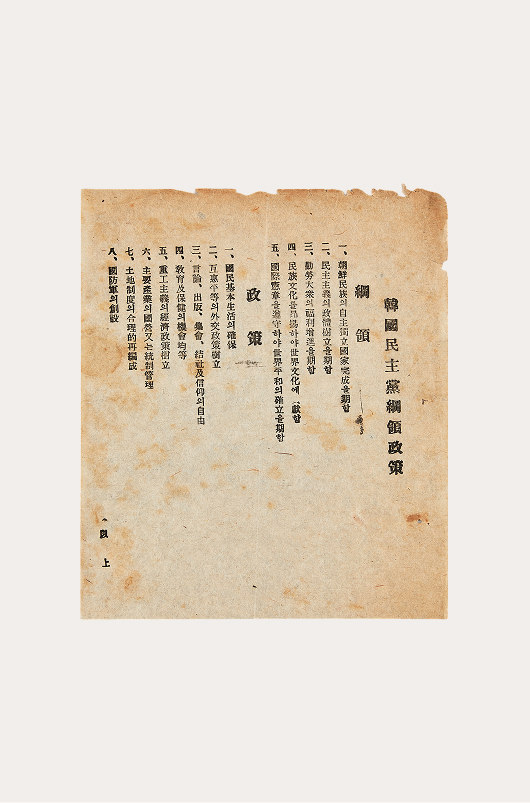 韓國民主黨綱領政策
綱領
一、朝鮮民族의自主獨立國家完成을期함
二、民主主義의政體樹立을期함
三、勤勞大衆의福利增進을期함
四、民族文化를昻揚하야世界文化에貢獻함
五、國際憲章을遵守하야世界平和의確立을期함
政策
一、國民基本生活의確保
二、互惠平等의外交政策樹立
三、言論、出版、集會、結社及信仰의自由
四、敎育及保健의機會均等
五、重工主義의經濟政策樹立
六、主要產業의國營又는統制管理
七、土地制度의合理的再編成
八、國防軍의創設
以上